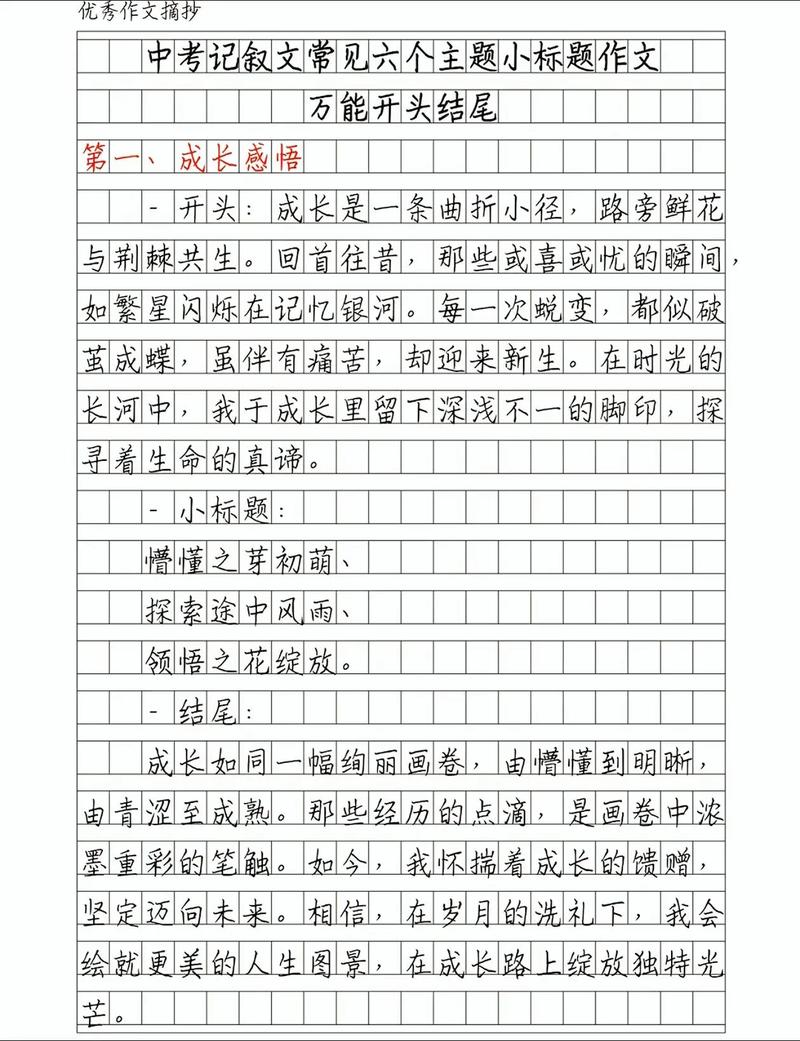 优秀作文摘抄
中考记叙文常见六个主题小标题作文
万能开头结尾
第一、成长感悟
- 开头：成长是一条曲折小径，路旁鲜花
与荆棘共生。回首往昔，那些或喜或忧的瞬间，
如繁星闪烁在记忆银河。每一次蜕变，都似破
茧成蝶，虽伴有痛苦，却迎来新生。在时光的
长河中，我于成长里留下深浅不一的脚印，探
寻着生命的真谛。
- 小标题：
懵懂之芽初萌、
探索途中风雨、
领悟之花绽放。
- 结尾：
成长如同一幅绚丽画卷，由懵懂到明晰，
由青涩至成熟。那些经历的点滴，是画卷中浓
墨重彩的笔触。如今，我怀揣着成长的馈赠，
坚定迈向未来。相信，在岁月的洗礼下，我会
绘就更美的人生图景，在成长路上绽放独特光
芒。